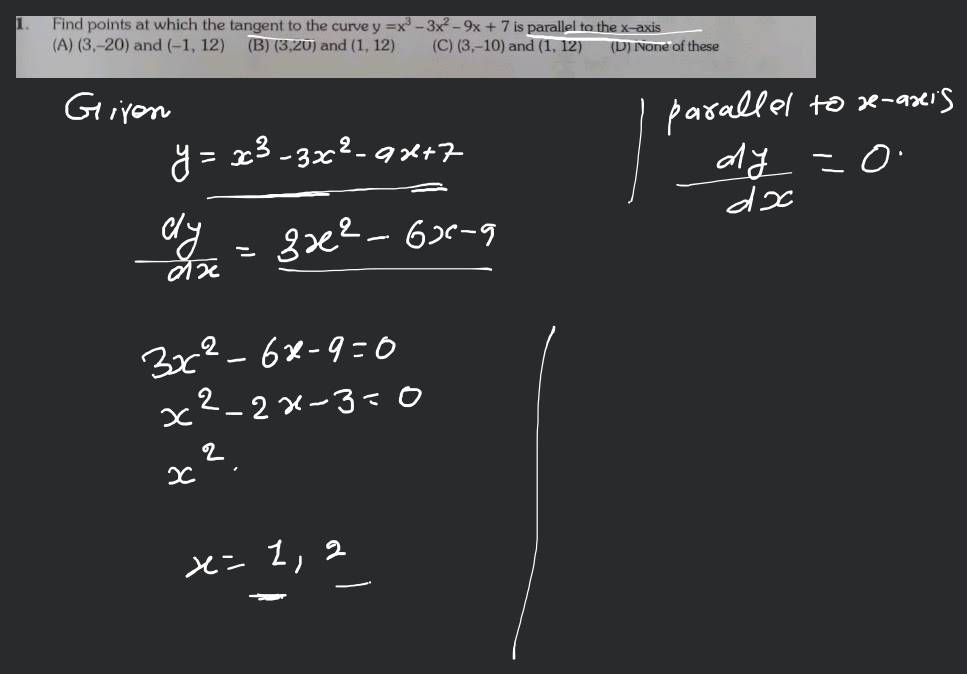 1. Find points at which the tangent to the curve y =x³ – 3x² – 9x + 7 is parallel to the x–axis
(A) (3,–20) and (–1, 12) (B) (3,20) and (1, 12) (C) (3,–10) and (1, 12) (D) None of these
Given
y = x³ - 3x² - 9x + 7
dy/dx = 3x² - 6x - 9
parallel to x-axis
dy/dx = 0.
3x² - 6x - 9 = 0
x² - 2x - 3 = 0
x² .
x = 1, 2